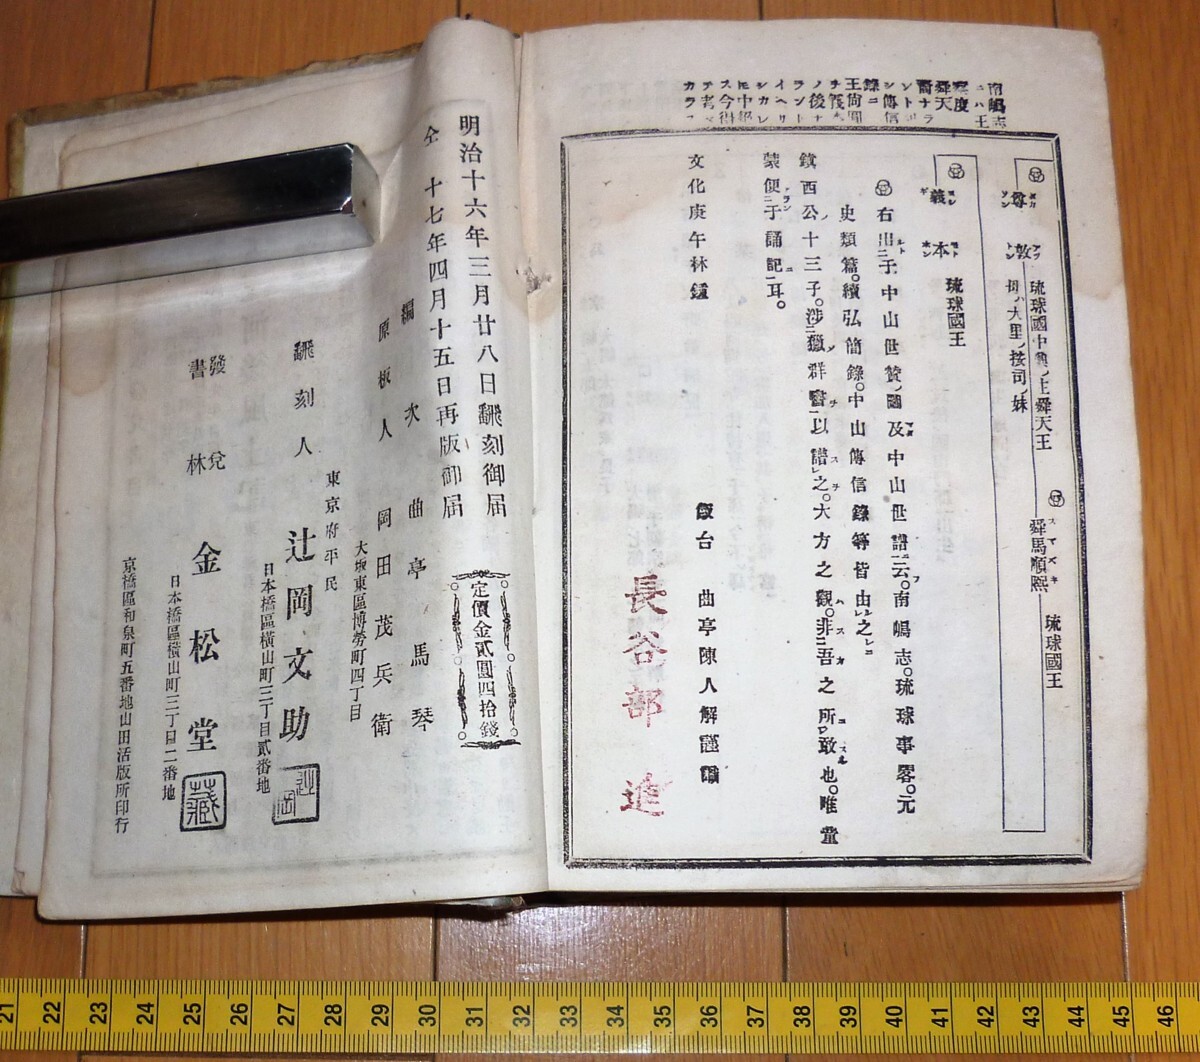 尊敦
琉球國中興ノ主舜天王
母ハ大里ノ按司ノ妹
舜馬順熙
琉球國王
義本
琉球國王
右出于中山世贊ノ圖及中山世譜云。南嶋志。琉球事畧。元
史類篇。續弘簡錄。中山傳信錄等皆由之。
鎮西公十三子。涉獵群醫以譜之。大方之觀。非吾之所敢也。唯童
蒙便于誦記耳。
文化庚午林鐘
飯台 曲亭陳人解謹識
長谷部 進
明治十六年三月廿八日飜刻御届
仝 十七年四月十五日再版御届
定價金貳圓四拾錢
編次 曲亭馬琴
原板人 岡田茂兵衛
大坂東區博勞町四丁目
東京府平民
飜刻人 辻岡文助
日本橋區横山町三丁目貳番地
發兌書林 金松堂
日本橋區横山町三丁目二番地
京橋區和泉町五番地山田活版所印行
辻岡
藏
21 22 23 24 25 26 27 28 29 30 31 32 33 34 35 36 37 38 39 40 41 42 43 44 45 46